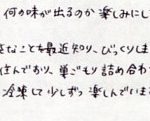 何が味が出るのか楽しみにし
なことを最近知り、びっくりしま
住んでおり、巣ごもり詰め合わ
冷凍して少しずつ楽しんでいま